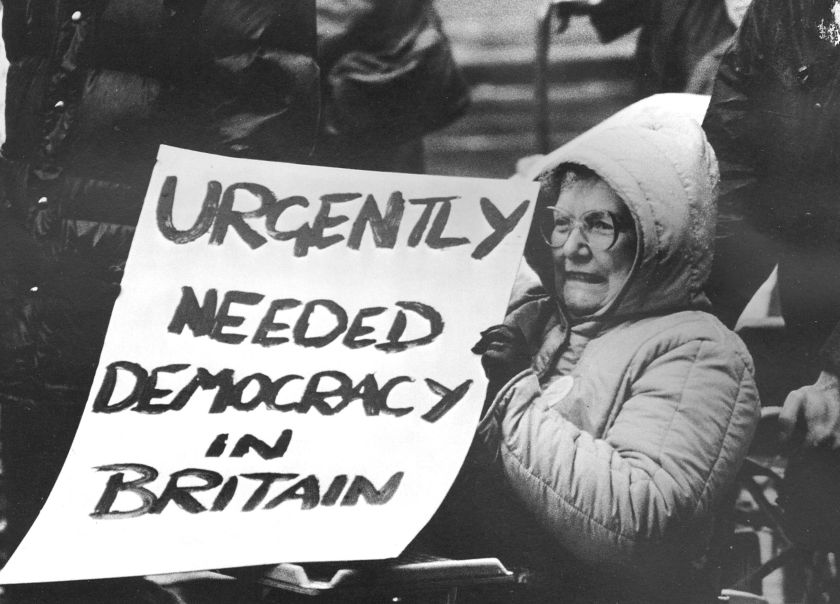 URGENTLY
NEEDED
DEMOCRACY
IN
BRITAIN